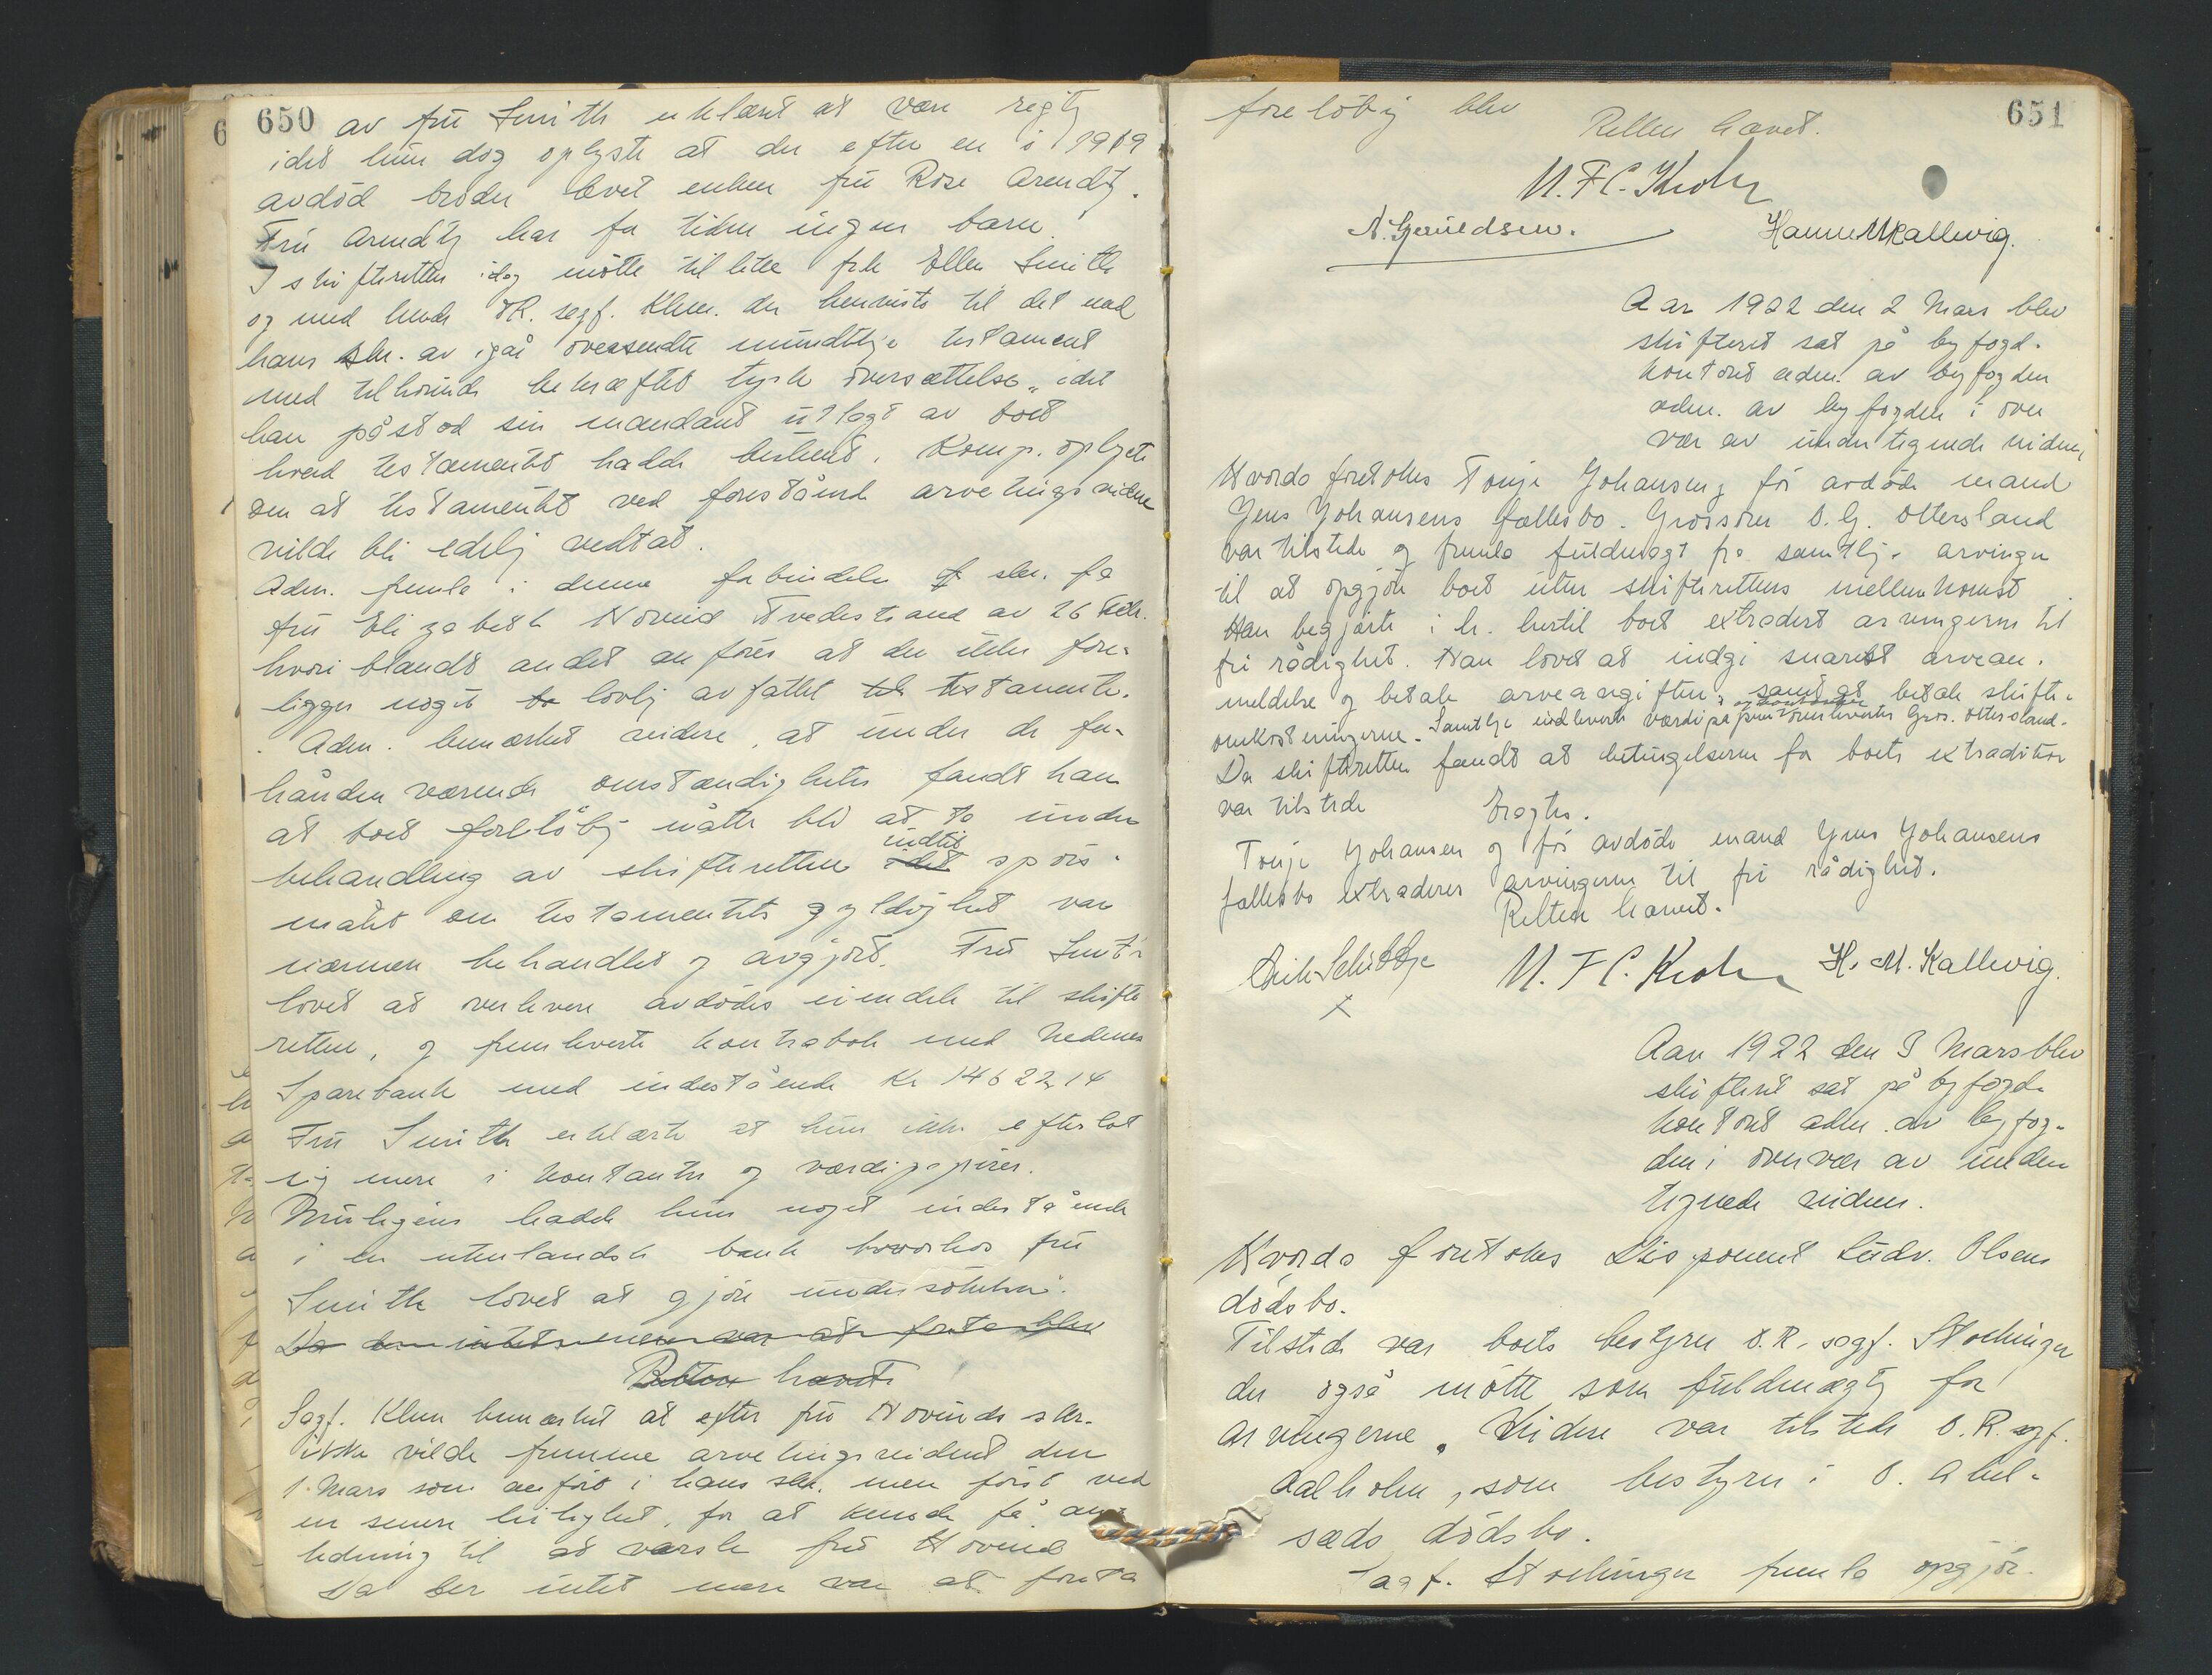 650
av frü Smith erklæret at være rigtig
idet hün dog oplyste at der efter en i 1919
avdöd broder levet enken frü Rose Arendtz.
Frü Arendtz har for tiden ingen barn.
I skifteretten idag mötte tillike frk Ellen Smith
og med hende OR. sagf. Klem. der henviste til det med
hans skr. av igår oversendte mündtlige testament
med tilhörende bekræftet tysk oversættelse, idet
han påstod sin mandant ütlagt av boet
hvad testamentet hadde bestemt. Komp. oplyste
om at testamentet ved forestående arvetingsvidne
vilde bli edelig vedtat.
Adm. femla i denne forbindelse skr. fra
frü Elizabeth Hovind Tvedestrand av 26 Febr.
hvori blandt andet anföres at der ikke fore-
ligger noget lovlig avfattet testamente.
Adm. bemærket videre, at ünder de for-
hånden værende omstændigheter fandt han
at boet foreløbig måtte bli at ta ünder
behandling av skifteretten indtil spörs-
målet om testamentets gyldighet var
nærmere behandlet og avgjort. Frü Smith
lovet at overlevere avdödes eiendele til skifte
retten, og fremleverte kontrabok med Nedenes
Sparebank med indestående Kr 14622,14
Frü Smith erklærte at hün ikke efterlot
sig mere i kontanter og værdipapirer.
Müligens hadde hün noget indestående
i en ütenlandsk bank hvorhos frü
Smith lovet at gjöre ündersökelse.
Da der intet mere var at foreta blev
Retten hævet
Sagf. Klem bemærket at efter frü Hovinds skr.
ikke vilde fremme arvetingsvidnet den
1 Mars som anfört i hans skr. men först ved
en senere leilighet, for at kunde få an-
ledning til at varsle frü Hovind
Da der intet mere var at foreta
651
foreløbig blev Retten hævet.
N. F C. Krohn
N. Gjeruldsen. Hanne M Kallevig.
Aar 1922 den 2 Mars blev
skifteret sat på byfogd-
kontoret adm. av byfogden
adm. av byfogden i over
vær av ündertegnede vidner,
Hvorda foretokes Tonje Johansens og för avdöde mand
Jens Johansens fællesbo. Grosserer O. G. Ottersland
var tilstede og femla füldmagt fra samtlige arvinger
til at opgjöre boet üten skifterettens mellemkomst
Han begjærte i h. hertil boet extradert arvingerne til
fri rådighet. Han lovet at indgi snarest arvean-
meldelse og betale arveavgiften, samt at betale skifte-
omkostningerne. Samtlige indleverte værdipapirer overlevertes Gros. Ottersland.
Da skifteretten fandt at betingelserne for boets extradition
var tilstede Eragtes.
Tonje Johansen og för avdöde mand Jens Johansens
fællesbo extraderes arvingerne til fri rådighet.
Retten hævet.
Erik Schüttze N. F C. Krohn H. M. Kallevig.
x
Aar 1922 den 3 Mars blev
skifteret sat på byfogd-
kontoret adm. av byfog-
den i overvær av ünder
tegnede vidner.
Hvorda foretokes Disponent Lüdv. Olsens
dödsbo.
Tilstede var boets bestyrer O.R. sagf. Stochinger
der også mötte som füldmægtig for
arvingerne. Videre var tilstede O.R. sagf.
Aalholm, som bestyrer i O. Abel-
sæds dödsbo.
Sagf. Stochinger femla opgjör.